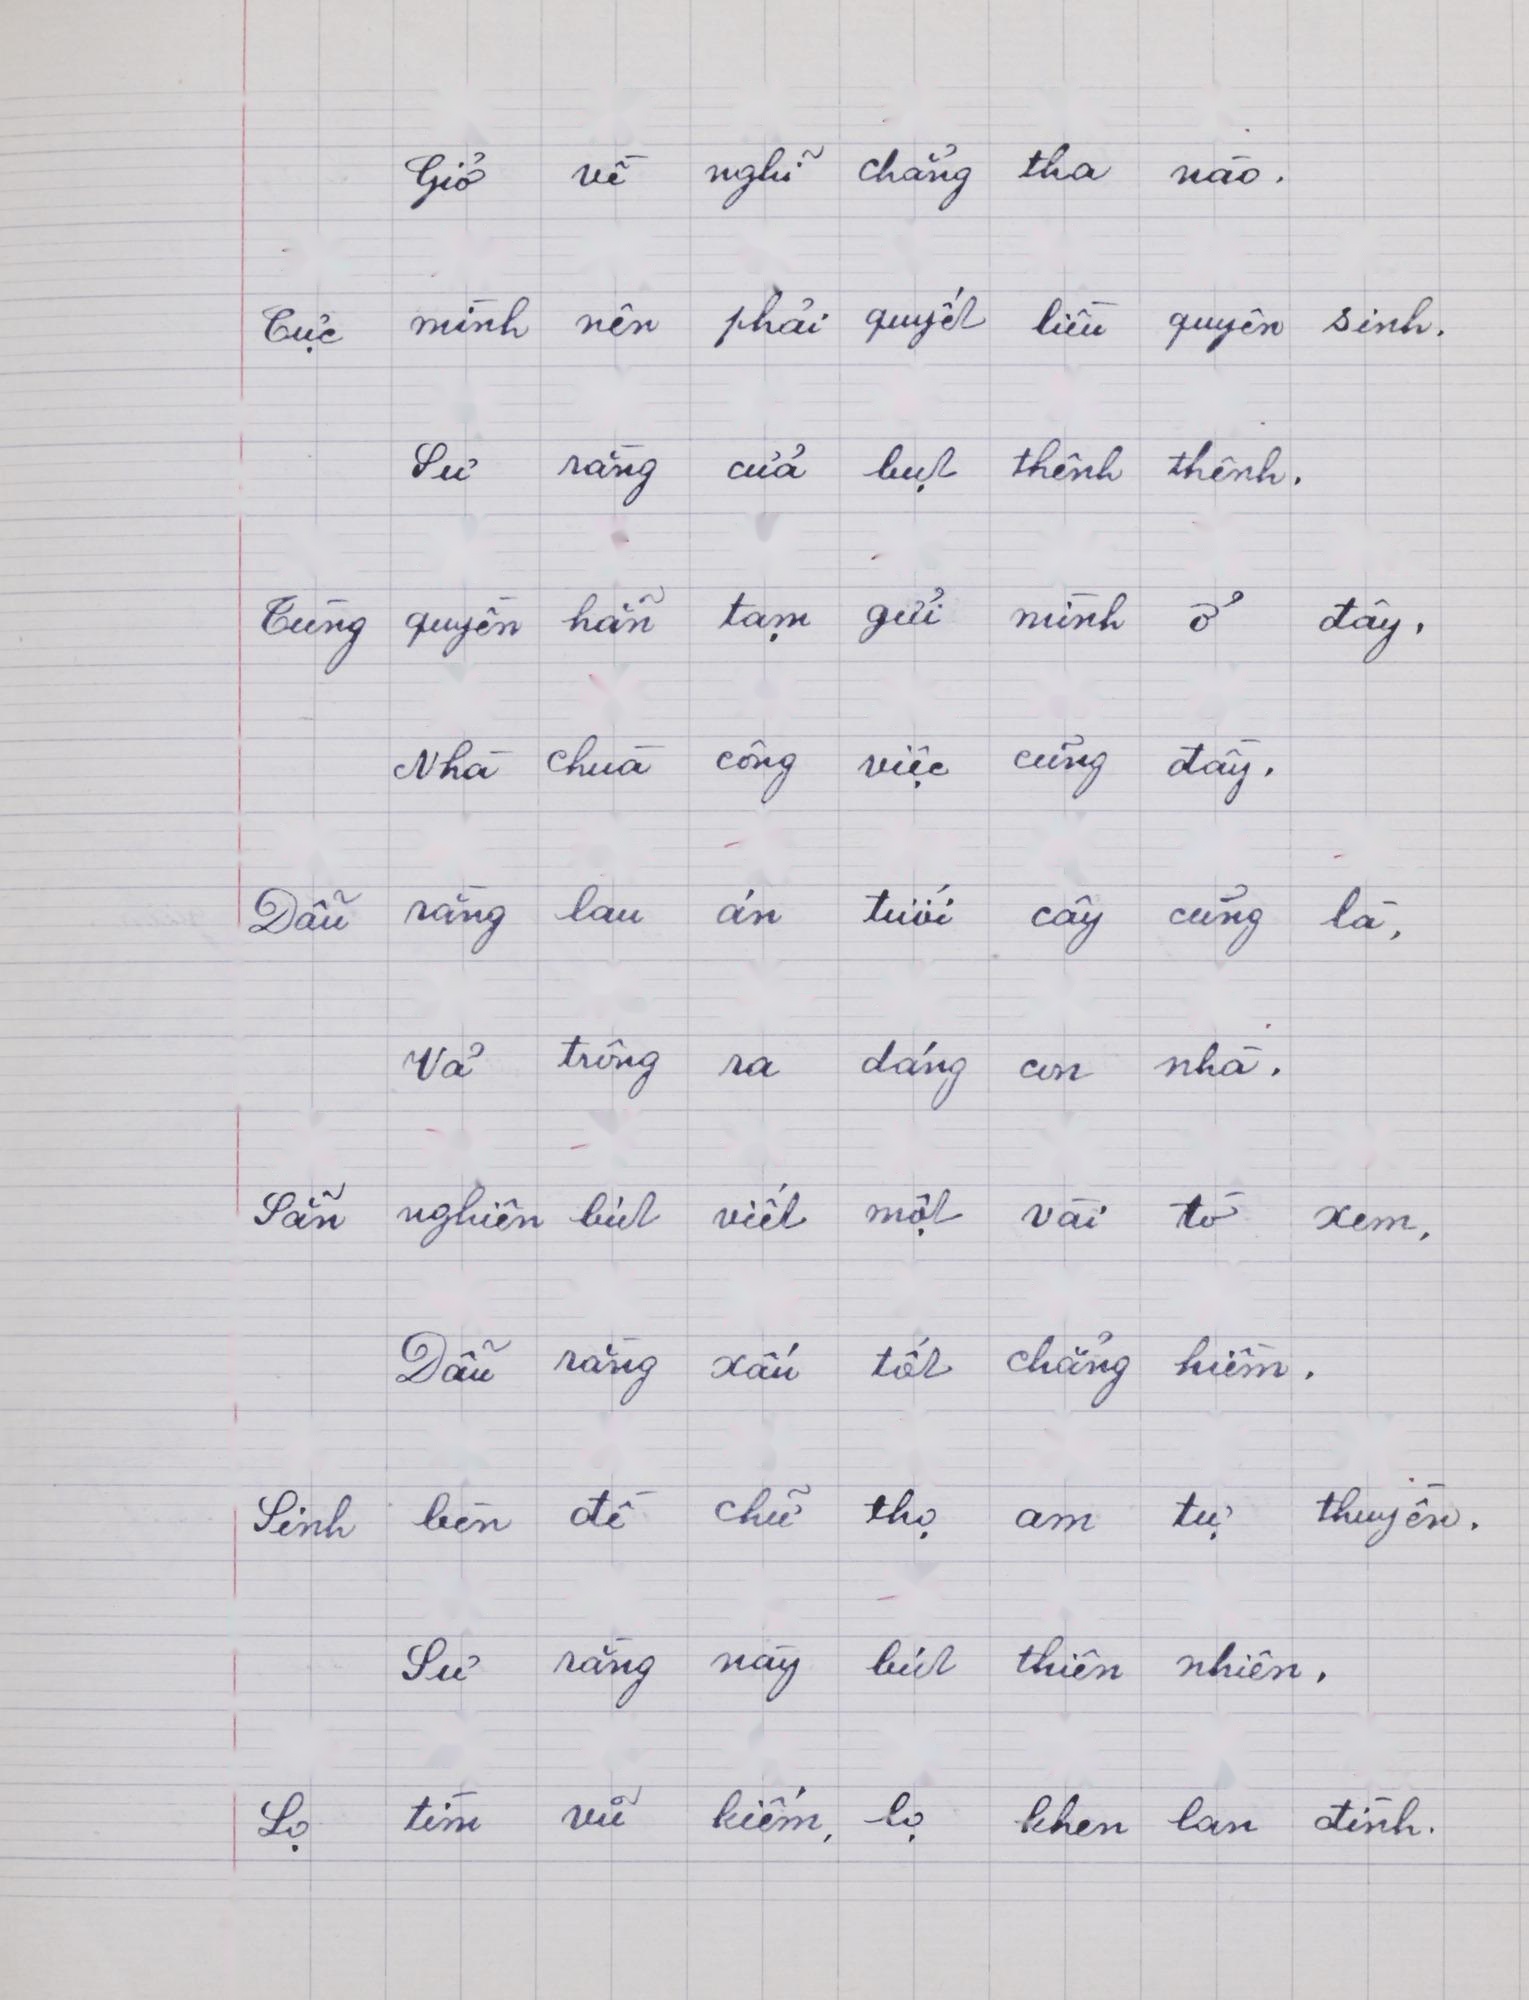 Giở về nghĩ chẳng tha nào.
Cực mình nên phải quyết liều quyên sinh.
Sư rằng cửa bụt thênh thênh.
Tùng quyền hẵn tạm gửi mình ở đây,
Nhà chùa công việc cũng đầy,
Dẫu rằng lau án tưới cây cũng là,
Vả trông ra dáng con nhà.
Sẵn nghiên bút viết một vài tờ xem,
Dẫu rằng xấu tốt chẳng hiềm.
Sinh bèn đề chữ thọ am tự thuyền.
Sư rằng này bút thiên nhiên,
Lọ tìm vũ kiếm, lọ khen lan đình.